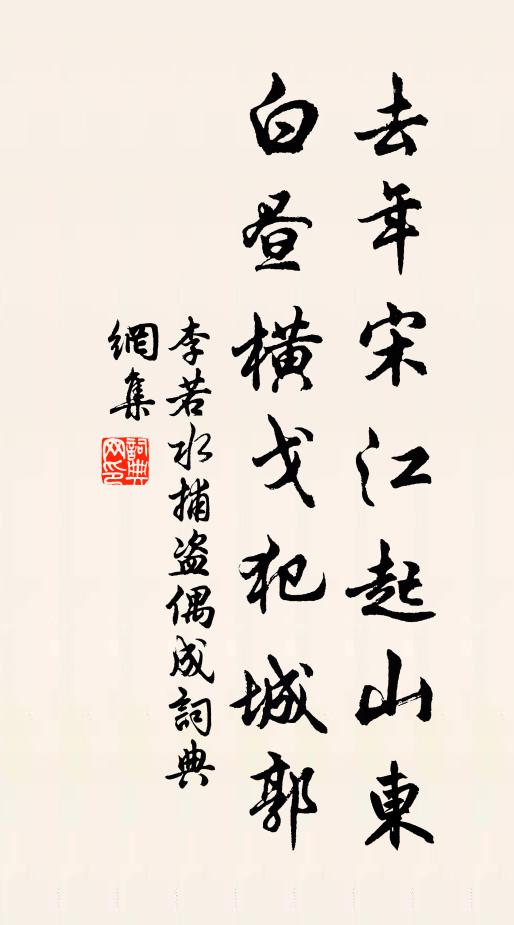 去年宋江起山東
白晝橫戈犯城郭
李若水捕盜偶成詞典
網集
詞典網印